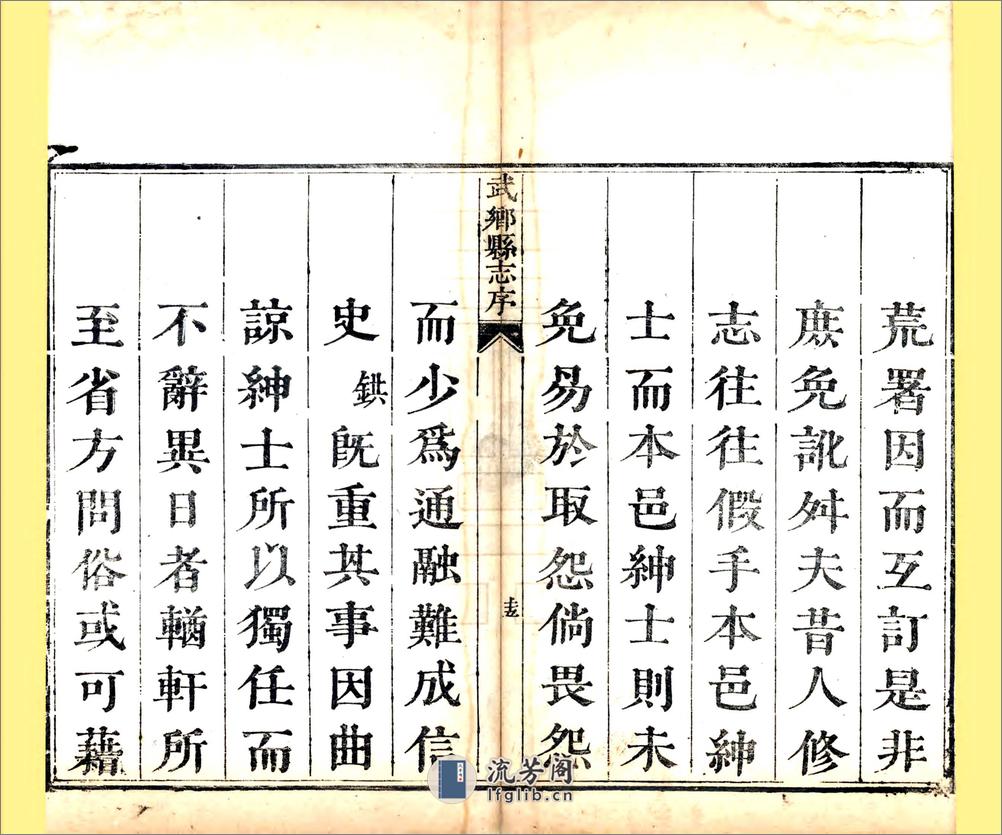 荒署因而互訂是非
庻免訛舛夫昔人修
志往往假手本邑紳
士而本邑紳士則未
免易於取怨倘畏怨
武鄉縣志序
十五
而少爲通融難成信
史鉷旣重其事因曲
諒紳士所以獨任而
不辭異日者輶軒所
至省方問俗或可藉
流芳阁
lfglib.cn